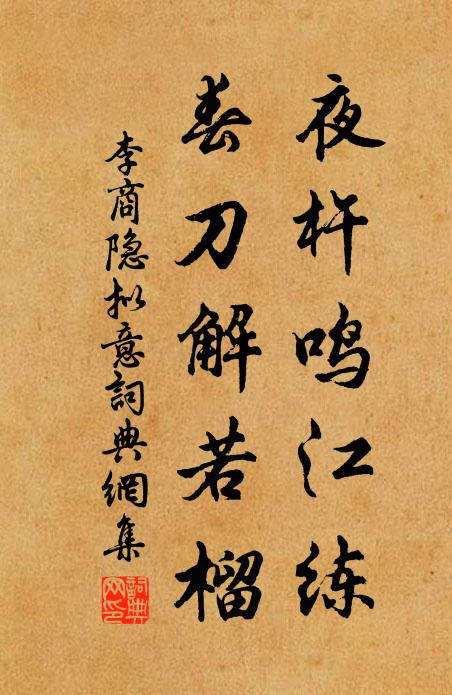 夜杵鸣江练
春刀解若榴
李商隐拟意詞典網集
詞典网印